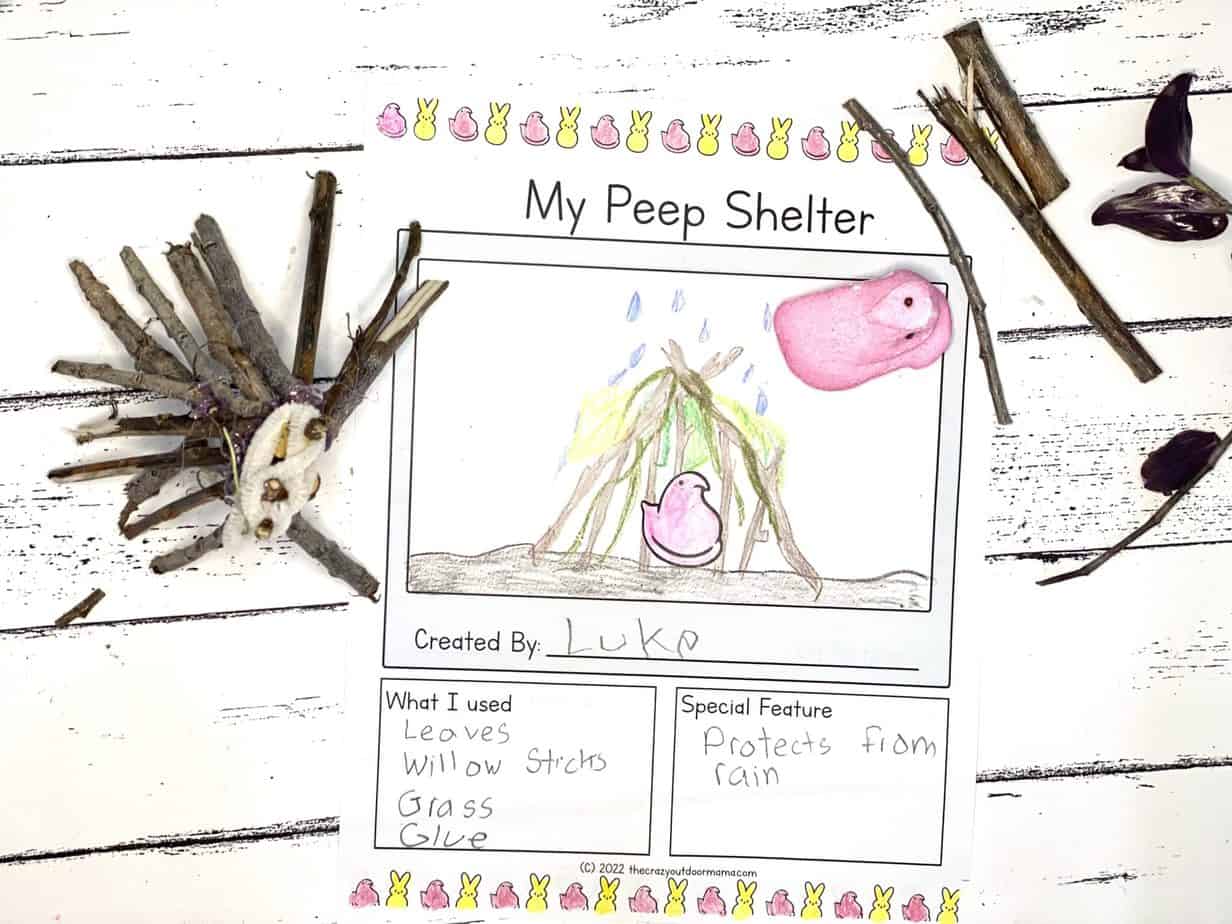 My Peep Shelter
Created By: Luke
What I used
Leaves
Willow Sticks
Grass
Glue
Special Feature
Protects from
rain
(C) 2022 thecrazyoutdoormama.com